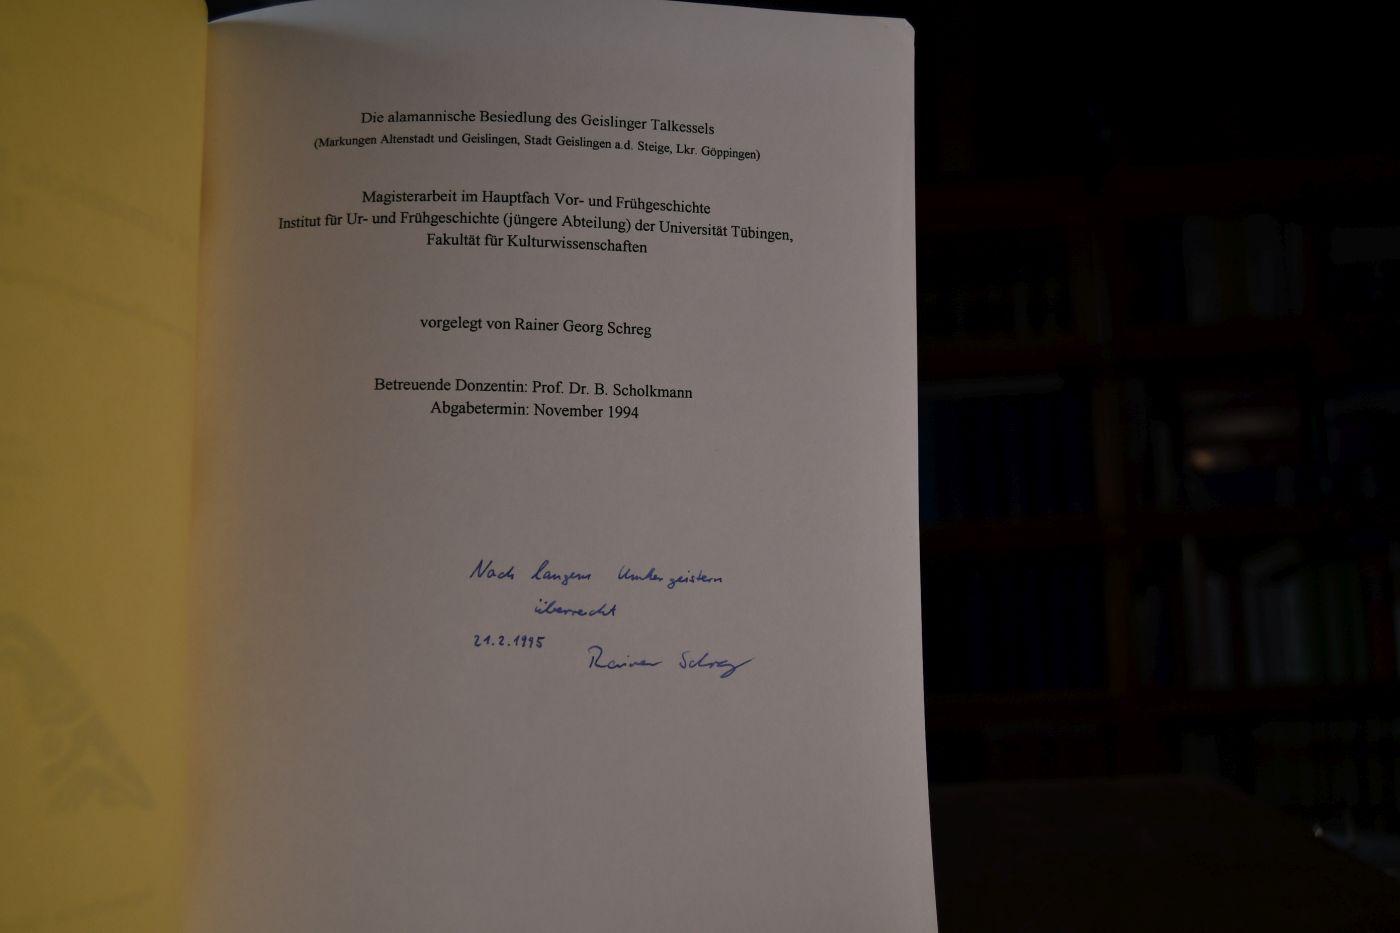 Die alamannische Besiedlung des Geislinger Talkessels
(Markungen Altenstadt und Geislingen, Stadt Geislingen a.d. Steige, Lkr. Göppingen)
Magisterarbeit im Hauptfach Vor- und Frühgeschichte
Institut für Ur- und Frühgeschichte (jüngere Abteilung) der Universität Tübingen,
Fakultät für Kulturwissenschaften
vorgelegt von Rainer Georg Schreg
Betreuende Donzentin: Prof. Dr. B. Scholkmann
Abgabetermin: November 1994
Nach langem Umhergeistern
überreicht
21.2.1995
Rainer Schreg